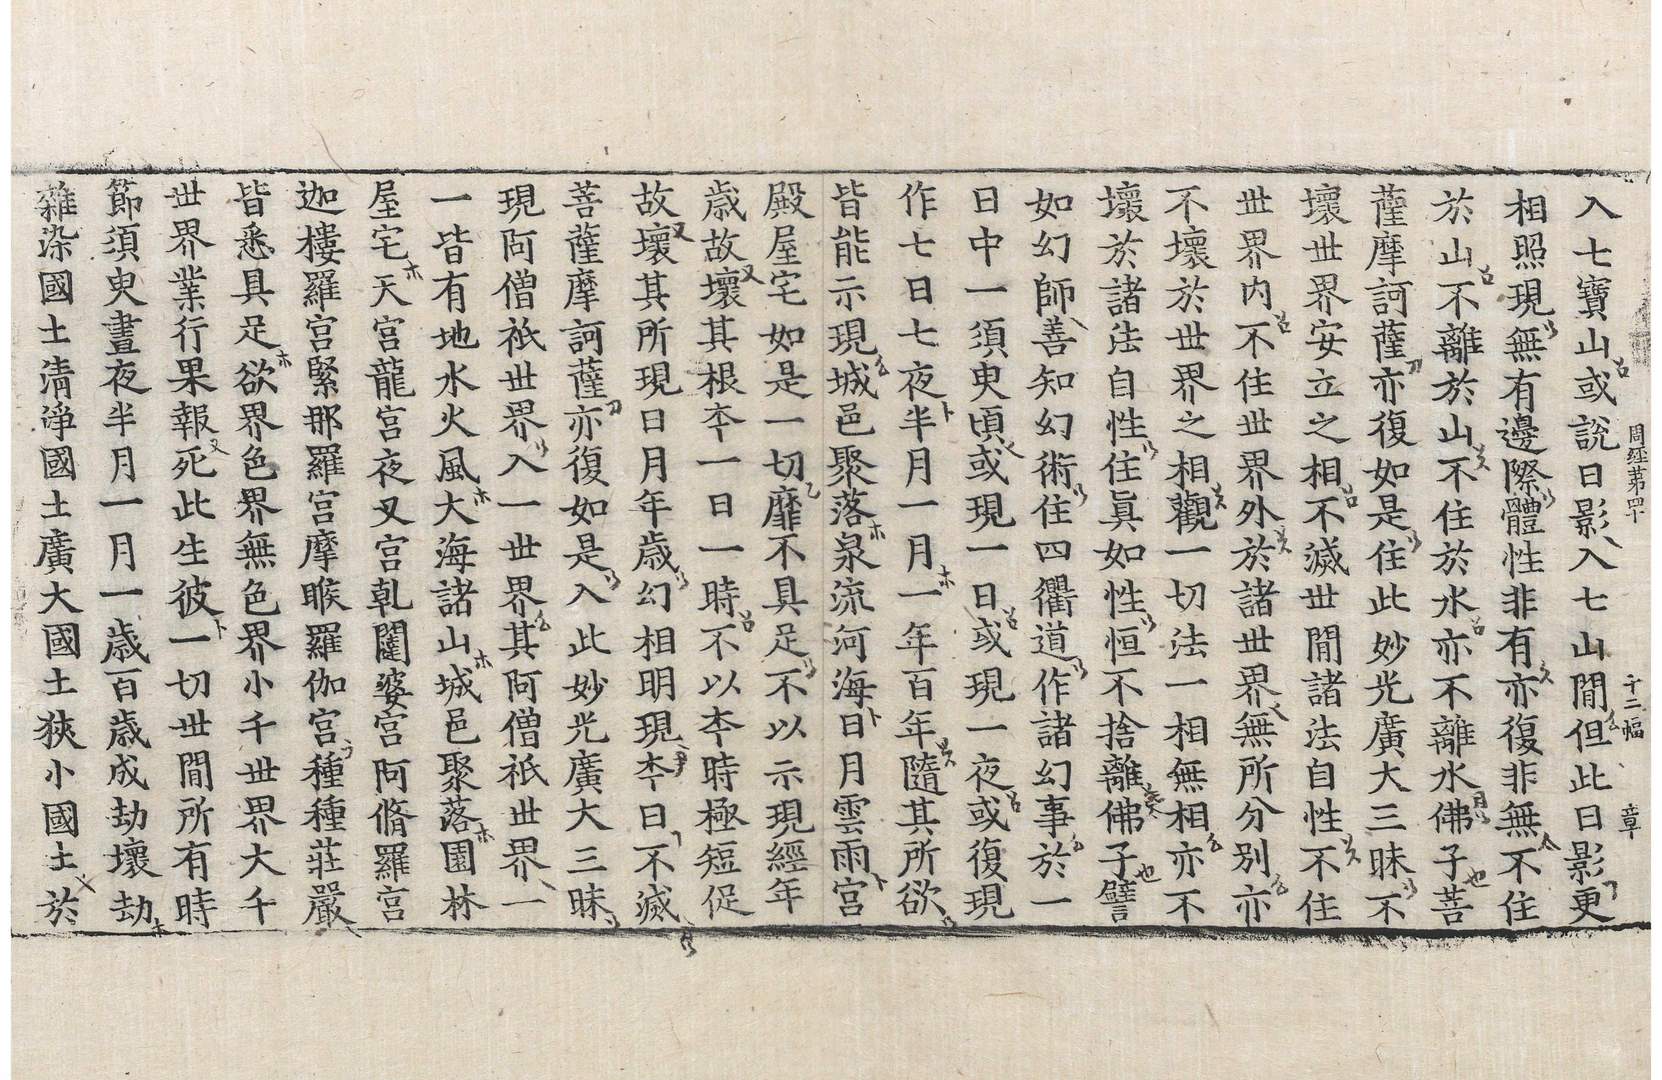 周経苐四十 十二幅 章
入七寶山或說日影入七山間但此日影更
相照現無有邊際體性非有亦復非無不住
於山不離於山不住於水亦不離水佛子菩
薩摩訶薩亦復如是住此妙光廣大三昧不
壞世界安立之相不滅世間諸法自性不住
世界內不住世界外於諸世界無所分別亦
不壞於世界之相觀一切法一相無相亦不
壞於諸法自性住眞如性恒不捨離佛子譬
如幻師善知幻術住四衢道作諸幻事於一
日中一須臾頃或現一日或現一夜或復現
作七日七夜半月一月一年百年隨其所欲
皆能示現城邑聚落泉流河海日月雲雨宮
殿屋宅如是一切靡不具足不以示現經年
歲故壞其根本一日一時不以本時極短促
故壞其所現日月年歲幻相明現本日不滅
菩薩摩訶薩亦復如是入此妙光廣大三昧
現阿僧祇世界入一世界其阿僧祇世界一
一皆有地水火風大海諸山城邑聚落園林
屋宅天宮龍宮夜叉宮乹闥婆宮阿脩羅宮
迦樓羅宮緊那羅宮摩睺羅伽宮種種莊嚴
皆悉具足欲界色界無色界小千世界大千
世界業行果報死此生彼一切世間所有時
節須臾晝夜半月一月一歲百歲成劫壞劫
雜染國土清淨國土廣大國土狹小國土於